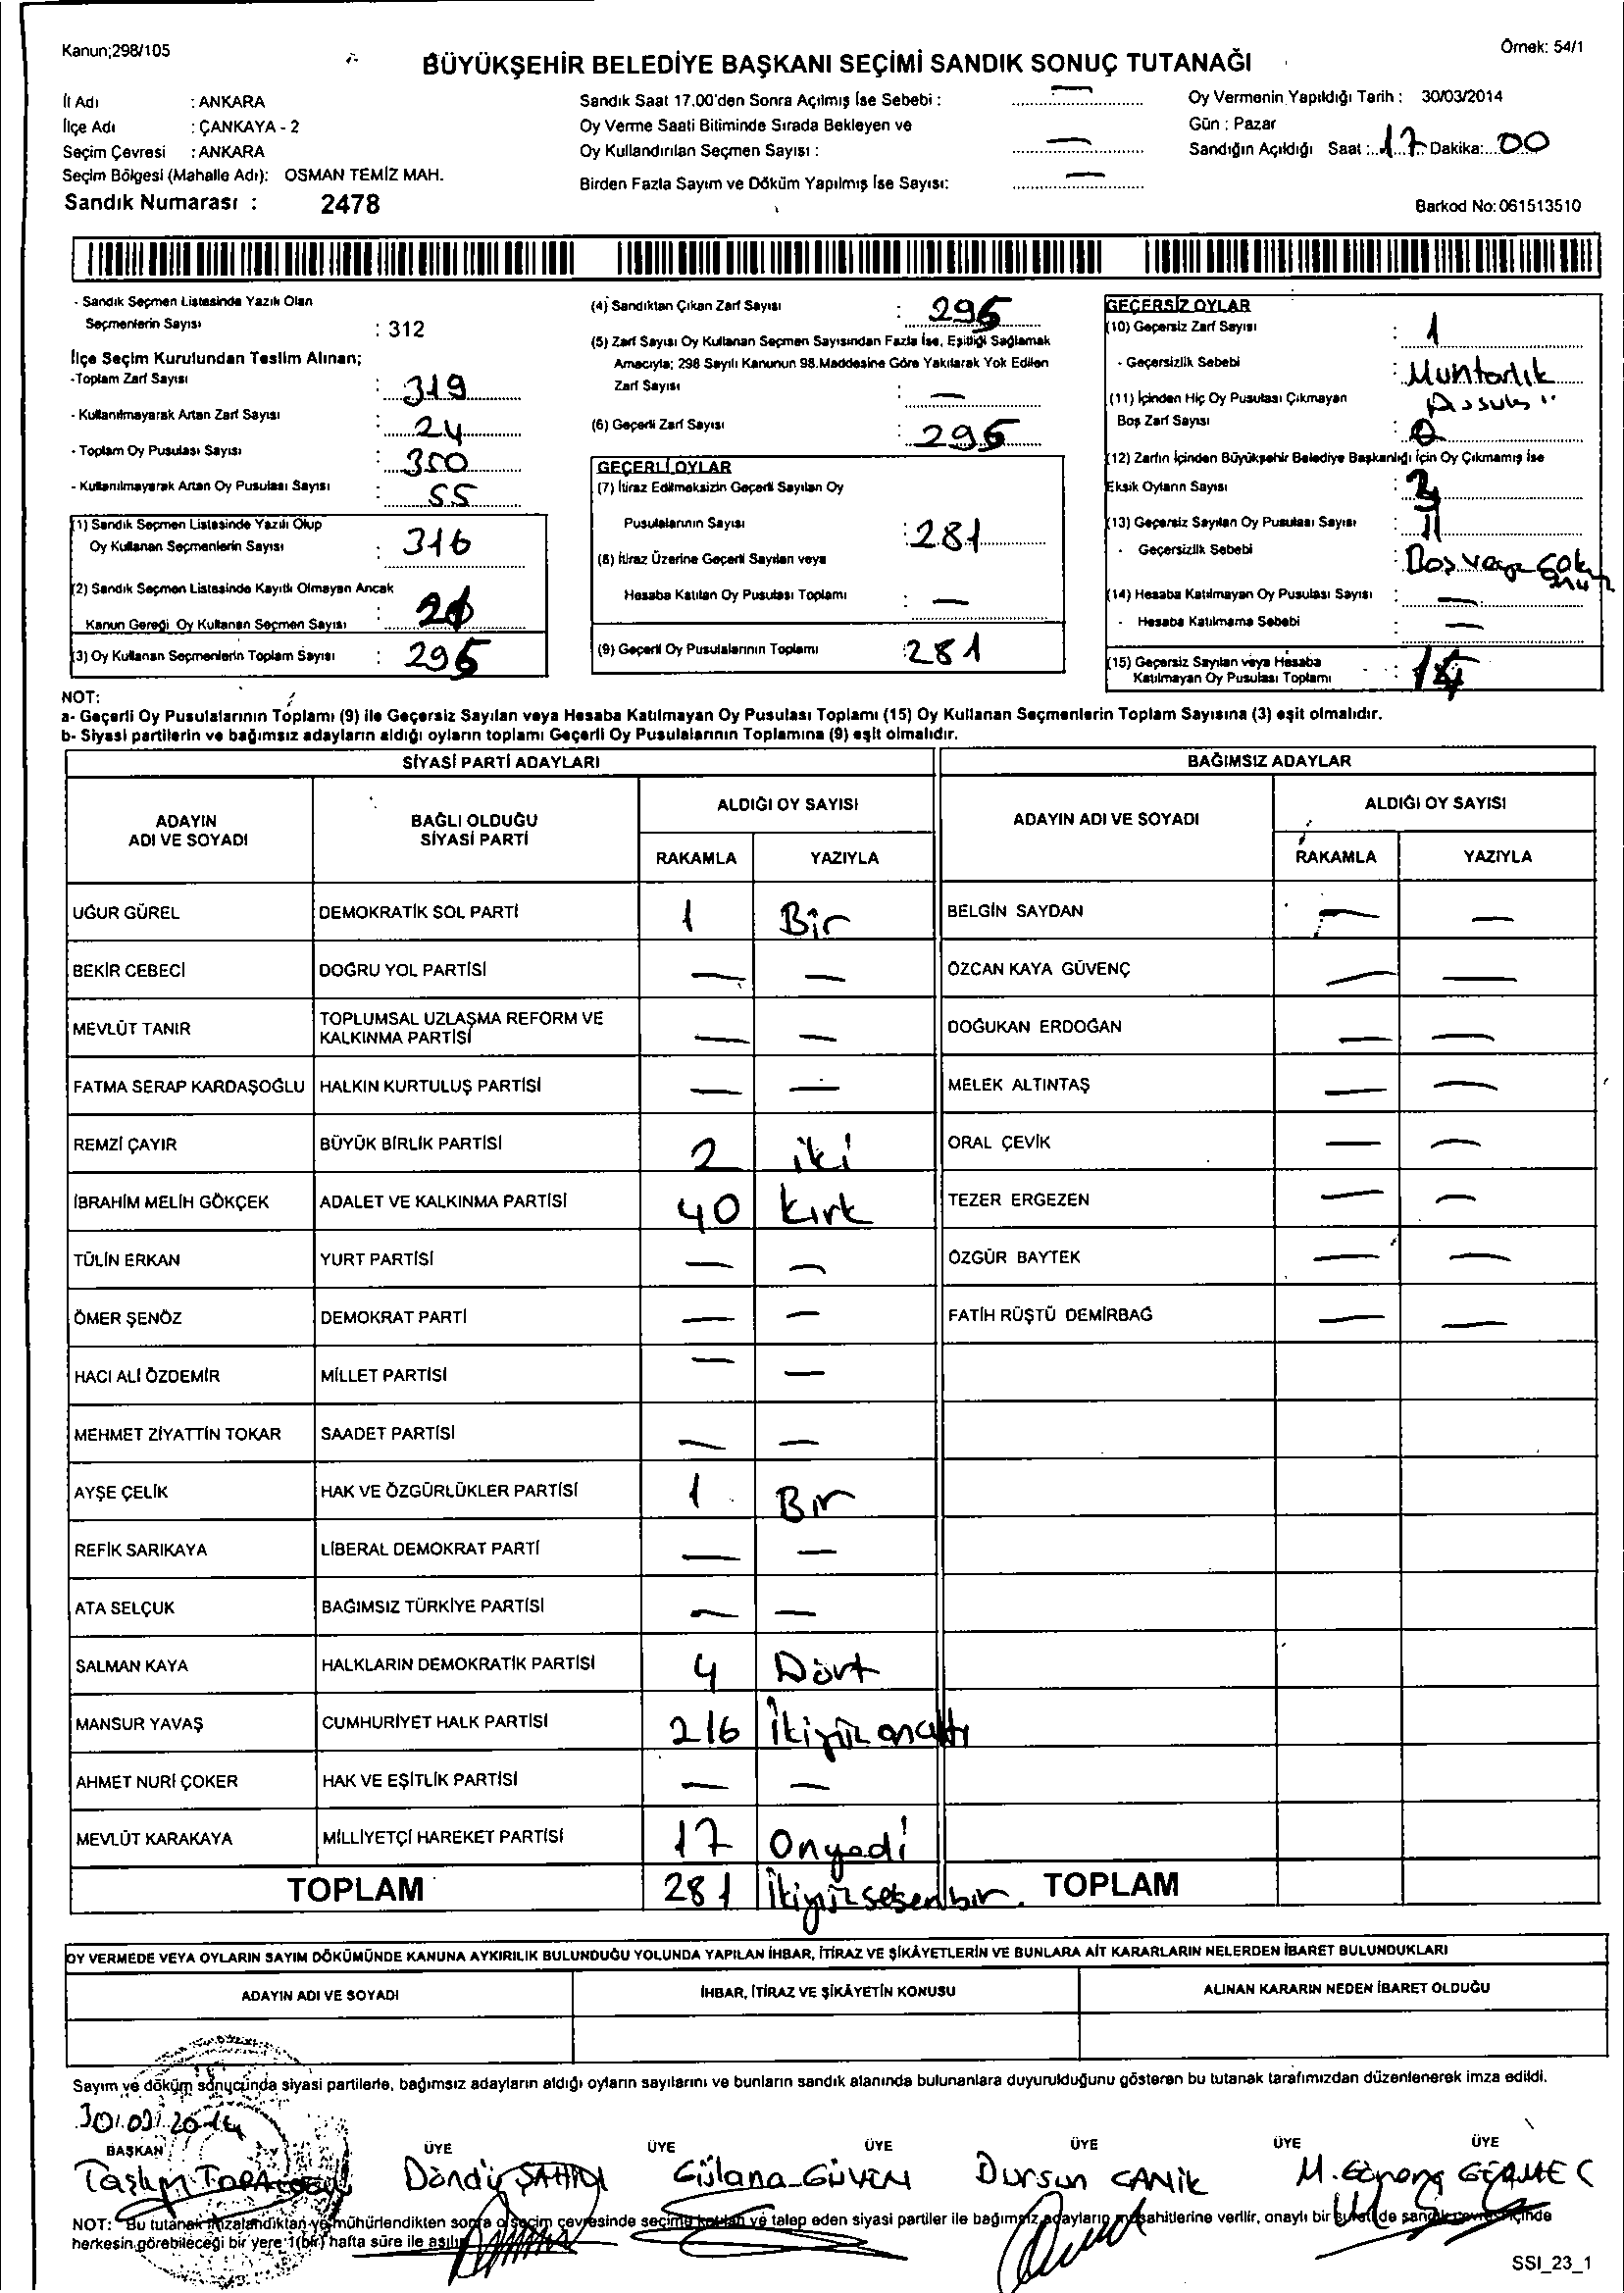 Kanun;298/105
Örnek: 54/1
BÜYÜKŞEHİR BELEDİYE BAŞKANI SEÇİMİ SANDIK SONUÇ TUTANAĞI
İl Adı : ANKARA
İlçe Adı : ÇANKAYA - 2
Seçim Çevresi : ANKARA
Seçim Bölgesi (Mahalle Adı): OSMAN TEMİZ MAH.
Sandık Numarası : 2478
Sandık Saat 17.00'den Sonra Açılmış İse Sebebi : —
Oy Verme Saati Bitiminde Sırada Bekleyen ve
Oy Kullandırılan Seçmen Sayısı : —
Birden Fazla Sayım ve Döküm Yapılmış İse Sayısı: —
Oy Vermenin Yapıldığı Tarih : 30/03/2014
Gün : Pazar
Sandığın Açıldığı Saat : 17 Dakika: 00
Barkod No: 061513510
- Sandık Seçmen Listesinde Yazılı Olan
Seçmenlerin Sayısı : 312
İlçe Seçim Kurulundan Teslim Alınan;
-Toplam Zarf Sayısı : 319
- Kullanılmayarak Artan Zarf Sayısı : 24
- Toplam Oy Pusulası Sayısı : 350
- Kullanılmayarak Artan Oy Pusulası Sayısı : 55
(1) Sandık Seçmen Listesinde Yazılı Olup
Oy Kullanan Seçmenlerin Sayısı : 316
(2) Sandık Seçmen Listesinde Kayıtlı Olmayan Ancak
Kanun Gereği Oy Kullanan Seçmen Sayısı :
(3) Oy Kullanan Seçmenlerin Toplam Sayısı : 295
(4) Sandıktan Çıkan Zarf Sayısı : 295
(5) Zarf Sayısı Oy Kullanan Seçmen Sayısından Fazla İse, Eşitliği Sağlamak
Amacıyla; 298 Sayılı Kanunun 98.Maddesine Göre Yakılarak Yok Edilen
Zarf Sayısı : —
(6) Geçerli Zarf Sayısı : 295
GEÇERLİ OYLAR
(7) İtiraz Edilmeksizin Geçerli Sayılan Oy
Pusulalarının Sayısı : 281
(8) İtiraz Üzerine Geçerli Sayılan veya
Hesaba Katılan Oy Pusulası Toplamı : —
(9) Geçerli Oy Pusulalarının Toplamı : 281
GEÇERSİZ OYLAR
(10) Geçersiz Zarf Sayısı : 1
- Geçersizlik Sebebi : Muhtarlık
(11) İçinden Hiç Oy Pusulası Çıkmayan
Boş Zarf Sayısı : 0
(12) Zarfın İçinden Büyükşehir Belediye Başkanlığı İçin Oy Çıkmamış İse
Eksik Oyların Sayısı : 3
(13) Geçersiz Sayılan Oy Pusulası Sayısı : 11
- Geçersizlik Sebebi : Boş veya
(14) Hesaba Katılmayan Oy Pusulası Sayısı : —
- Hesaba Katılmama Sebebi : —
(15) Geçersiz Sayılan veya Hesaba
Katılmayan Oy Pusulası Toplamı :
NOT:
a- Geçerli Oy Pusulalarının Toplamı (9) ile Geçersiz Sayılan veya Hesaba Katılmayan Oy Pusulası Toplamı (15) Oy Kullanan Seçmenlerin Toplam Sayısına (3) eşit olmalıdır.
b- Siyasi partilerin ve bağımsız adayların aldığı oyların toplamı Geçerli Oy Pusulalarının Toplamına (9) eşit olmalıdır.
SİYASİ PARTİ ADAYLARI BAĞIMSIZ ADAYLAR
ADAYIN ADI VE SOYADI BAĞLI OLDUĞU SİYASİ PARTİ ALDIĞI OY SAYISI ADAYIN ADI VE SOYADI ALDIĞI OY SAYISI
RAKAMLA YAZIYLA RAKAMLA YAZIYLA
UĞUR GÜREL DEMOKRATİK SOL PARTİ 1 Bir BELGİN SAYDAN — —
BEKİR CEBECİ DOĞRU YOL PARTİSİ — — ÖZCAN KAYA GÜVENÇ — —
MEVLÜT TANIR TOPLUMSAL UZLAŞMA REFORM VE KALKINMA PARTİSİ — — DOĞUKAN ERDOĞAN — —
FATMA SERAP KARDAŞOĞLU HALKIN KURTULUŞ PARTİSİ — — MELEK ALTINTAŞ — —
REMZİ ÇAYIR BÜYÜK BİRLİK PARTİSİ 2 iki ORAL ÇEVİK — —
İBRAHİM MELİH GÖKÇEK ADALET VE KALKINMA PARTİSİ 40 kırk TEZER ERGEZEN — —
TÜLİN ERKAN YURT PARTİSİ — — ÖZGÜR BAYTEK — —
ÖMER ŞENÖZ DEMOKRAT PARTİ — — FATİH RÜŞTÜ DEMİRBAĞ — —
HACI ALİ ÖZDEMİR MİLLET PARTİSİ — —
MEHMET ZİYATTİN TOKAR SAADET PARTİSİ — —
AYŞE ÇELİK HAK VE ÖZGÜRLÜKLER PARTİSİ 1 Bır
REFİK SARIKAYA LİBERAL DEMOKRAT PARTİ — —
ATA SELÇUK BAĞIMSIZ TÜRKİYE PARTİSİ — —
SALMAN KAYA HALKLARIN DEMOKRATİK PARTİSİ 4 Dört
MANSUR YAVAŞ CUMHURİYET HALK PARTİSİ 216 İkiyüz onaltı
AHMET NURİ ÇOKER HAK VE EŞİTLİK PARTİSİ — —
MEVLÜT KARAKAYA MİLLİYETÇİ HAREKET PARTİSİ 17 Onyedi
TOPLAM 281 İkiyüzseksenbır. TOPLAM
OY VERMEDE VEYA OYLARIN SAYIM DÖKÜMÜNDE KANUNA AYKIRILIK BULUNDUĞU YOLUNDA YAPILAN İHBAR, İTİRAZ VE ŞİKÂYETLERİN VE BUNLARA AİT KARARLARIN NELERDEN İBARET BULUNDUKLARI
ADAYIN ADI VE SOYADI İHBAR, İTİRAZ VE ŞİKÂYETİN KONUSU ALINAN KARARIN NEDEN İBARET OLDUĞU
Sayım ve döküm sonucunda siyasi partilerle, bağımsız adayların aldığı oyların sayılarını ve bunların sandık alanında bulunanlara duyurulduğunu gösteren bu tutanak tarafımızdan düzenlenerek imza edildi.
30/03/2014
BAŞKAN ÜYE ÜYE ÜYE ÜYE ÜYE ÜYE
Döndü ŞAHİN GÜVEN Dursun CANİK
NOT: Bu tutanak imzalandıktan ve mühürlendikten sonra o seçim çevresinde seçime katılan ve talep eden siyasi partiler ile bağımsız adayların müşahitlerine verilir, onaylı bir sureti de sandık çevresi içinde
herkesin görebileceği bir yere 1(bir) hafta süre ile asılır.
SSI_23_1